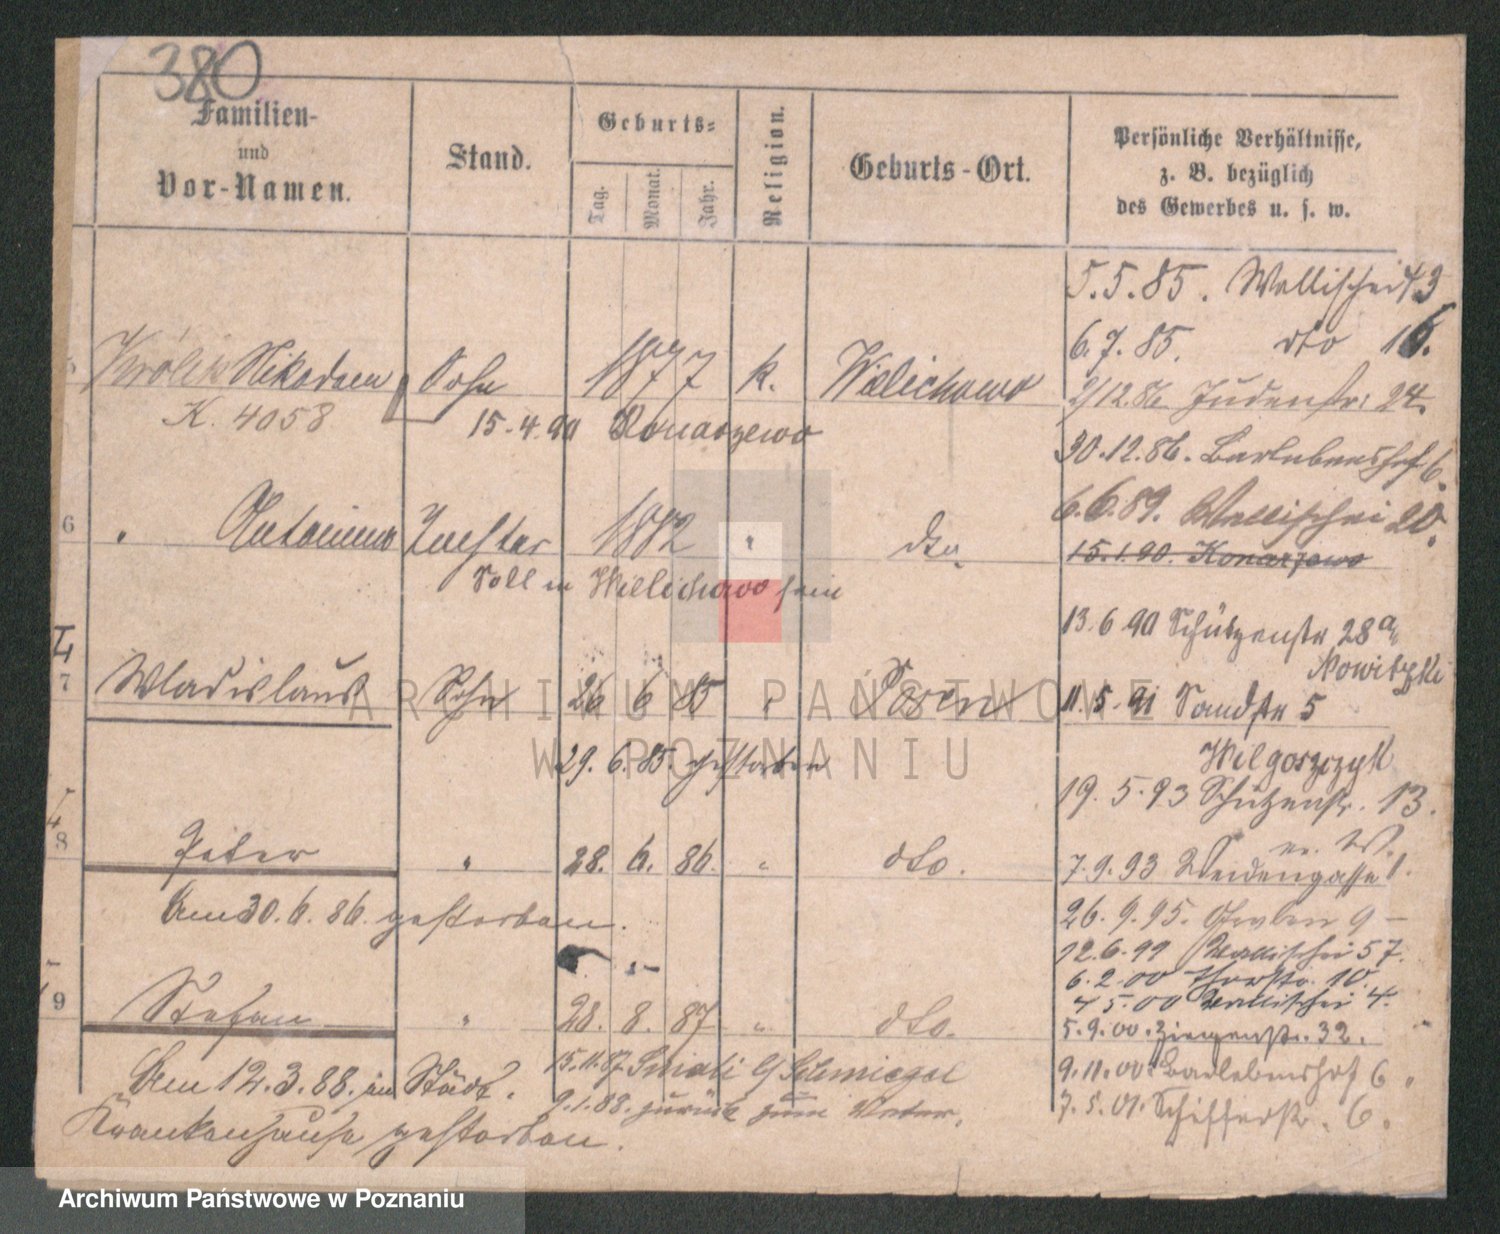 380
Familien-
und
Vor-Namen.
Stand.
Geburts-
Tag.
Monat.
Jahr.
Religion.
Geburts-Ort.
Persönliche Verhältnisse,
z. B. bezüglich
des Gewerbes u. s. w.
5.5.85. Wallischei 73
6.7.85. dto 16.
5 Królik Nikodem Sohn 1877 k. Wielichowo
2/12.86 Judenstr: 24.
K. 4058
15.4.90 Konarzewo
30.12.86. Barlebenshof 6.
6.6.89. Wallischei 20.
6 " Antonina Tochter 1882 " dto.
15.1.90. Konarzewo
Soll in Wielichowo sein
13.6.90 Schützenstr 28a
Nowitzki
7 Wladislaus Sohn 26 6 85 " Posen
11.5.91 Sandstr 5
29.6.85. gestorben
Wilgoszczyk
19.5.93 Schützenstr. 13.
8 Peter " 28. 6. 86. " dto.
7.9.93 Weidengasse 1.
Am 30.6.86. gestorben.
26.9.95. 9 –
12.6.99 Wallischei 57.
6.2.00 Thorstr. 10.
4 5.00 Wallischei 4.
9 Stefan " 28. 8. 87 " dto.
5.9.00. Ziegenstr. 32.
15.11.87 Schmiegel
9.11.00. Barlebenshof 6.
Am 12.3.88. im Städt.
9.1.88. zurück zum Vater.
7.5.01. Schifferstr. 6.
Krankenhause gestorben.
ARCHIWUM PAŃSTWOWE
W POZNANIU
Archiwum Państwowe w Poznaniu